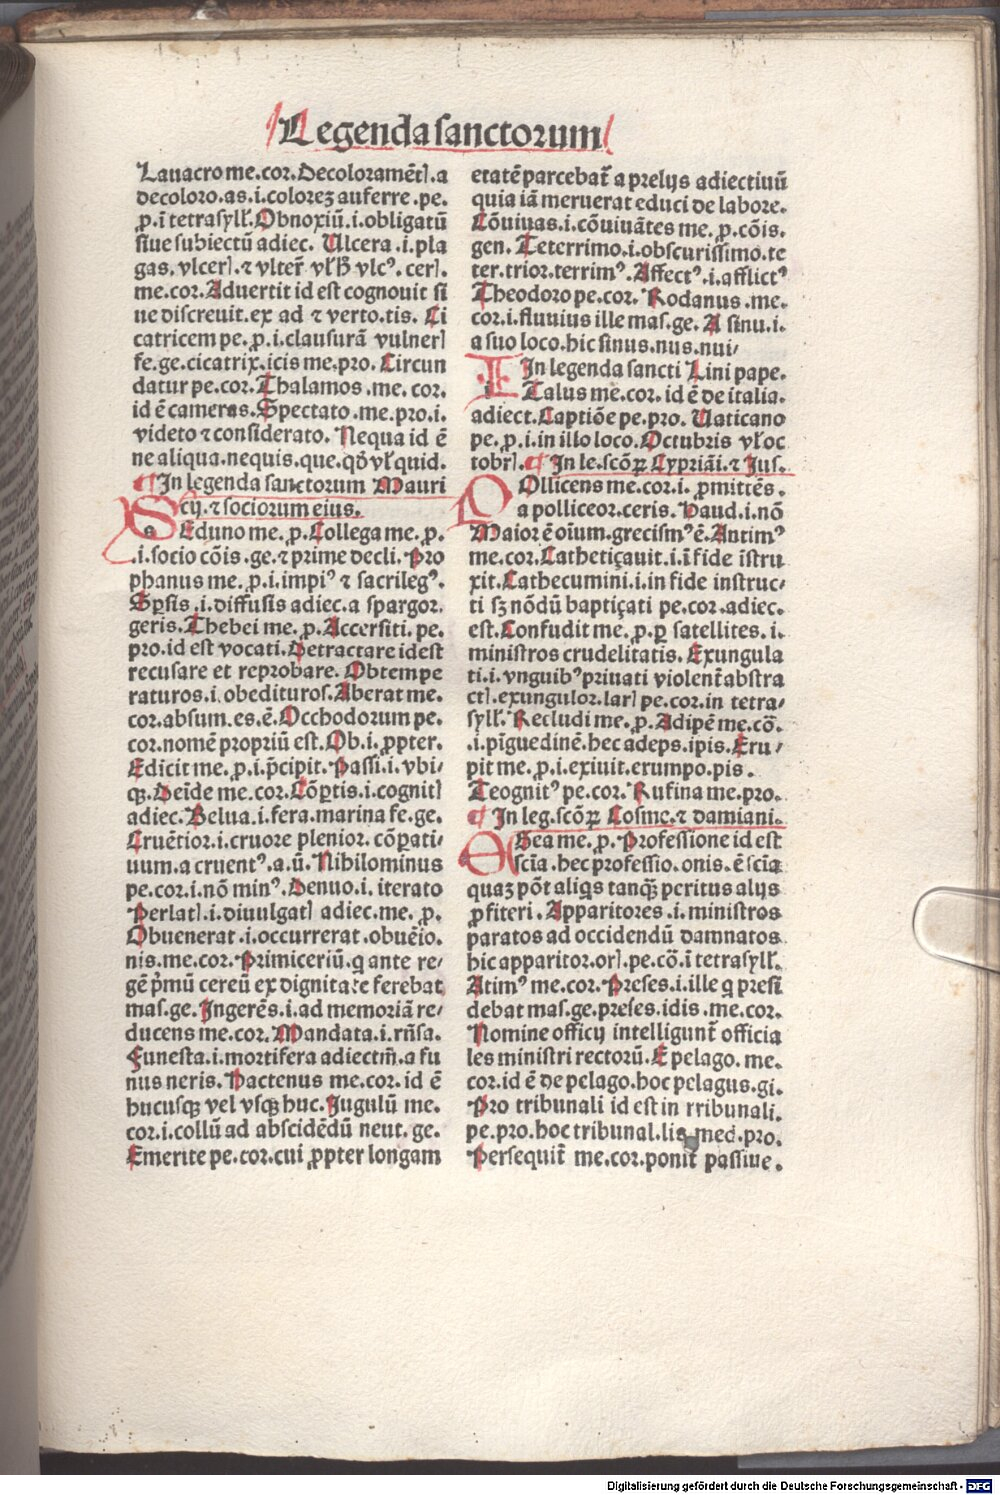 Legenda sanctorum
Lauacro me.cor.Decoloramētꝭ.a
decoloro.as.i.coloreꝫ auferre.pe.
ꝓ.i tetrasyll̃.Obnoxiū.i.obligatū
siue subiectū adiec. Ulcera.i.pla
gas.vlcerꝭ.⁊ vlter̃ vl̃ vlcꝰ.cerꝭ.
me.cor.Aduertit id est cognouit si
ue discreuit.ex ad ⁊ verto.tis. Ci
catricem pe.ꝓ.i clausurā vulnerꝭ
fe.ge.cicatrix.icis me.pro.Circun
datur pe.cor.Thalamos.me.cor.
id ē cameras.Spectato.me.pro.i.
videto ⁊ considerato. Nequa id ē
ne aliqua.nequis.que.qd̄ vl̃ quid.
¶ In legenda sanctorum Mauri
cij.⁊ sociorum eius.
SEduno me.ꝓ.Collega me.ꝓ.
.i.socio cōis.ge.⁊ prime decli.Pro
phanus me.ꝓ.i.impiꝰ ⁊ sacrilegꝰ.
Sꝑsis.i.diffusis adiec.a spargor.
geris.Thebei me.ꝓ.Accersiti.pe.
pro.id est vocati.Detractare idest
recusare et reprobare. Obtempe
raturos.i.obedituros.Aberat me.
cor.absum.es.ē.Occhodorum pe.
cor.nomē propriū est.Ob.i.ꝓpter.
Edicit me.ꝓ.i.p̄cipit.Passi.i.vbi-
qꝫ.Deīde me.cor.Cōꝑtis.i.cognitꝭ
adiec.Belua.i.fera.marina fe.ge.
Cruētior.i.cruore plenior.cōꝑati-
uum.a cruentꝰ.a.ū.Nihilominus
pe.cor.i.nō minꝰ.Denuo.i.iterato
Perlatꝭ.i.diuulgatꝭ adiec.me.ꝓ.
Obuenerat.i.occurrerat.obuēio.
nis.me.cor.Primiceriū.q ante re-
gē p̄mū cereū ex dignitate ferebat
mas.ge.Ingerēs.i.ad memoriā re-
ducens me.cor.Mandata.i.rñsa.
Funesta.i.mortifera adiectm̄.a fu
nus neris. Hactenus me.cor.id ē
hucusqꝫ vel vsqꝫ huc.Jugulū me.
cor.i.collū ad abscidēdū neut.ge.
Emerite pe.cor.cui ꝓpter longam
etatē parcebat̃ a prelijs adiectiuū
quia iā meruerat educi de labore.
Cōuiuas.i.cōuiuātes me.ꝓ.cōis.
gen.Teterrimo.i.obscurissimo.te
ter.trior.terrimꝰ.Affectꝰ.i.afflictꝰ
Theodoro pe.cor. Rodanus.me.
cor.i.fluuius ille mas.ge.A sinu.i.
a suo loco.hic sinus.nus.nui-
In legenda sancti Lini pape.
ITalus me.cor.id ē de italia.
adiect.Captiōe pe.pro. Uaticano
pe.ꝓ.i.in illo loco.Octubris vl̃ oc
tobrꝭ. ¶ In le.scōꝝ Cypriāi.⁊ Jus.
POllicens me.cor.i.ꝓmittēs.
a polliceor.ceris.Haud.i.nō
Maior ē oīum.grecismꝰ ē.Antimꝰ
me.cor.Cathetiçauit.i.ī fide īstru
xit.Cathecumini.i.in fide instruc-
ti sꝫ nōdū baptiçati pe.cor.adiec.
est.Confudit me.ꝓ.ꝑ satellites.i.
ministros crudelitatis. Exungula
ti.i.vnguibꝰ priuati violent̃ abstra
ctꝭ.exungulor.larꝭ pe.cor.in tetra-
syll̃.Recludi me.ꝓ.Adipē me.cō.
.i.pīguedinē.hec adeps.ipis.Eru-
pit me.ꝓ.i.exiuit.erumpo.pis.
Teognitꝰ pe.cor.Rufina me.pro.
¶ In leg.scōꝝ Cosme.⁊ damiani.
EGea me.ꝓ.Professione id est
scīa.hec professio.onis.ē scīa
quaꝫ pōt aliq̇s tanqꝫ peritus alijs
ꝓfiteri.Apparitores.i.ministros
paratos ad occidendū damnatos.
hic apparitor.orꝭ.pe.cō.ī tetrasyll̃.
Atimꝰ me.cor.Preses.i.ille q̇ presi
debat mas.ge.preses.idis.me.cor.
Nomine officij intelligunt̃ officia
les ministri rectorū.E pelago.me.
cor.id ē de pelago.hoc pelagus.gi.
Pro tribunali id est in rribunali.
pe.pro.hoc tribunal.lis med.pro.
Persequit̃ me.cor.ponit̃ passiue.
Digitalisierung gefördert durch die Deutsche Forschungsgemeinschaft - DFG